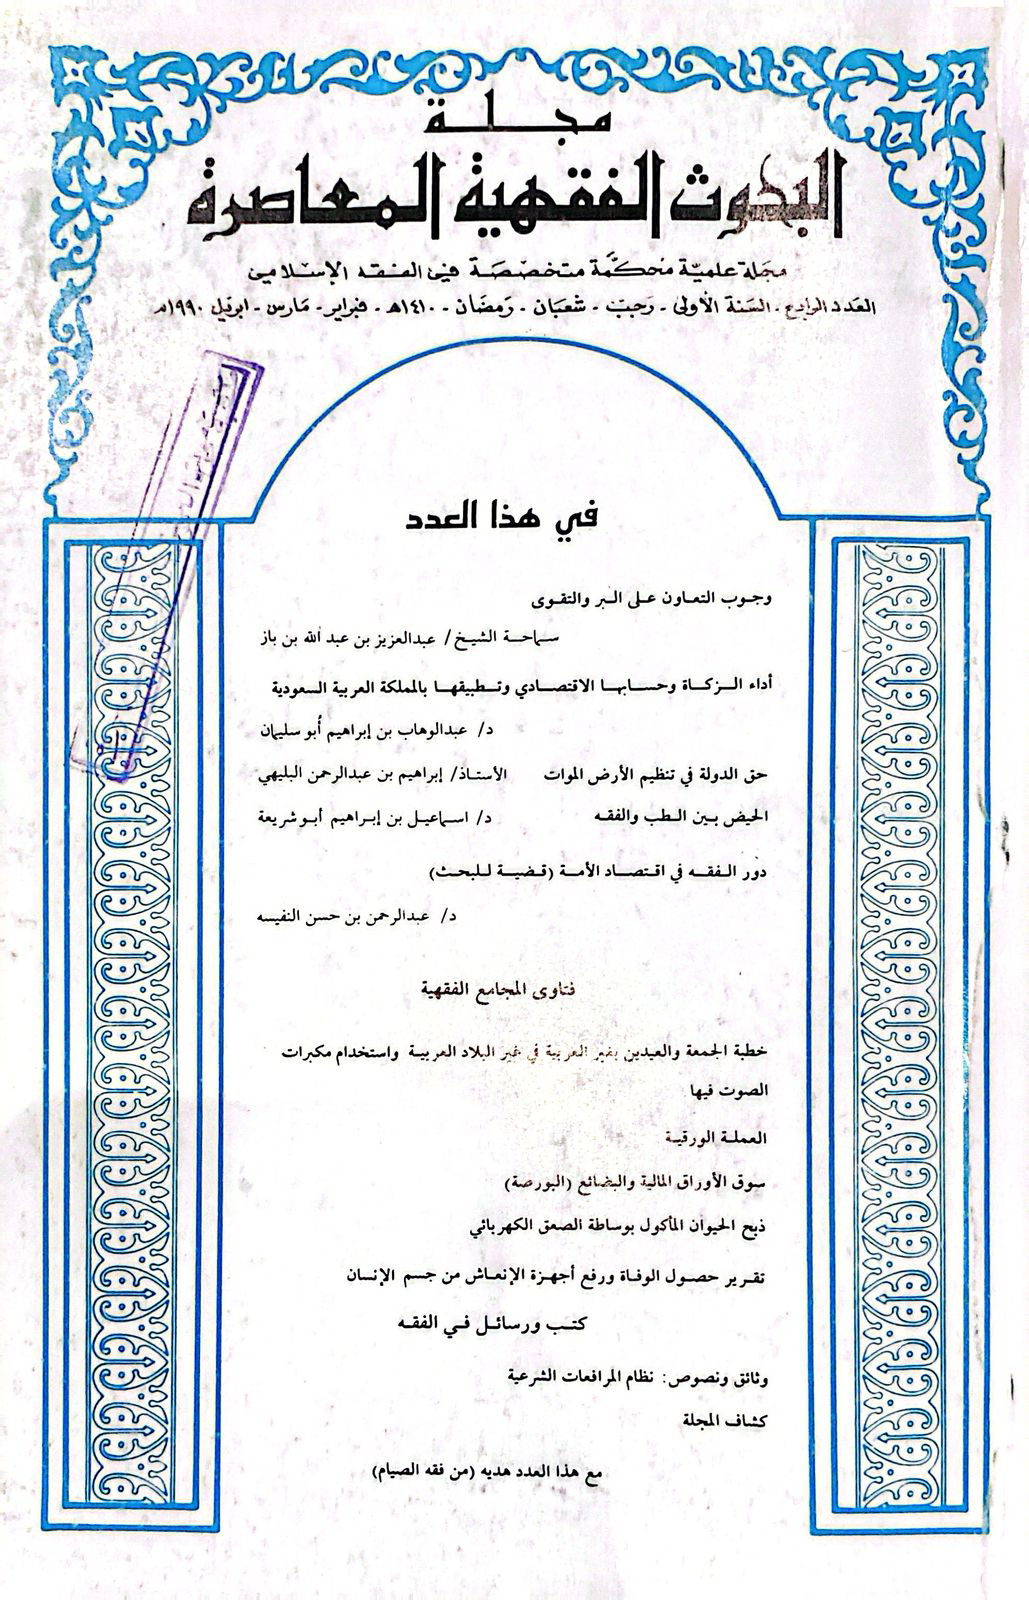 مجلة
البحوث الفقهية المعاصرة
مجلة علمية محكمة متخصصة في الفقه الإسلامي
العدد الرابع - السنة الأولى - رجب - شعبان - رمضان - ١٤١٠هـ - فبراير - مارس - ابريل ١٩٩٠م
في هذا العدد
وجوب التعاون على البر والتقوى
سماحة الشيخ / عبدالعزيز بن عبد الله بن باز
أداء الزكاة وحسابها الاقتصادي وتطبيقها بالمملكة العربية السعودية
د/ عبدالوهاب بن إبراهيم أبو سليمان
حق الدولة في تنظيم الأرض الموات الأستاذ/ إبراهيم بن عبدالرحمن البليهي
الحيض بين الطب والفقه د/ اسماعيل بن إبراهيم أبو شريعة
دور الفقه في اقتصاد الأمة (قضية للبحث)
د/ عبدالرحمن بن حسن النفيسه
فتاوى المجامع الفقهية
خطبة الجمعة والعيدين بغير العربية في غير البلاد العربية واستخدام مكبرات
الصوت فيها
العملة الورقية
سوق الأوراق المالية والبضائع (البورصة)
ذبح الحيوان المأكول بوساطة الصعق الكهربائي
تقرير حصول الوفاة ورفع أجهزة الإنعاش من جسم الإنسان
كتب ورسائل في الفقه
وثائق ونصوص: نظام المرافعات الشرعية
كشاف المجلة
مع هذا العدد هديه (من فقه الصيام)